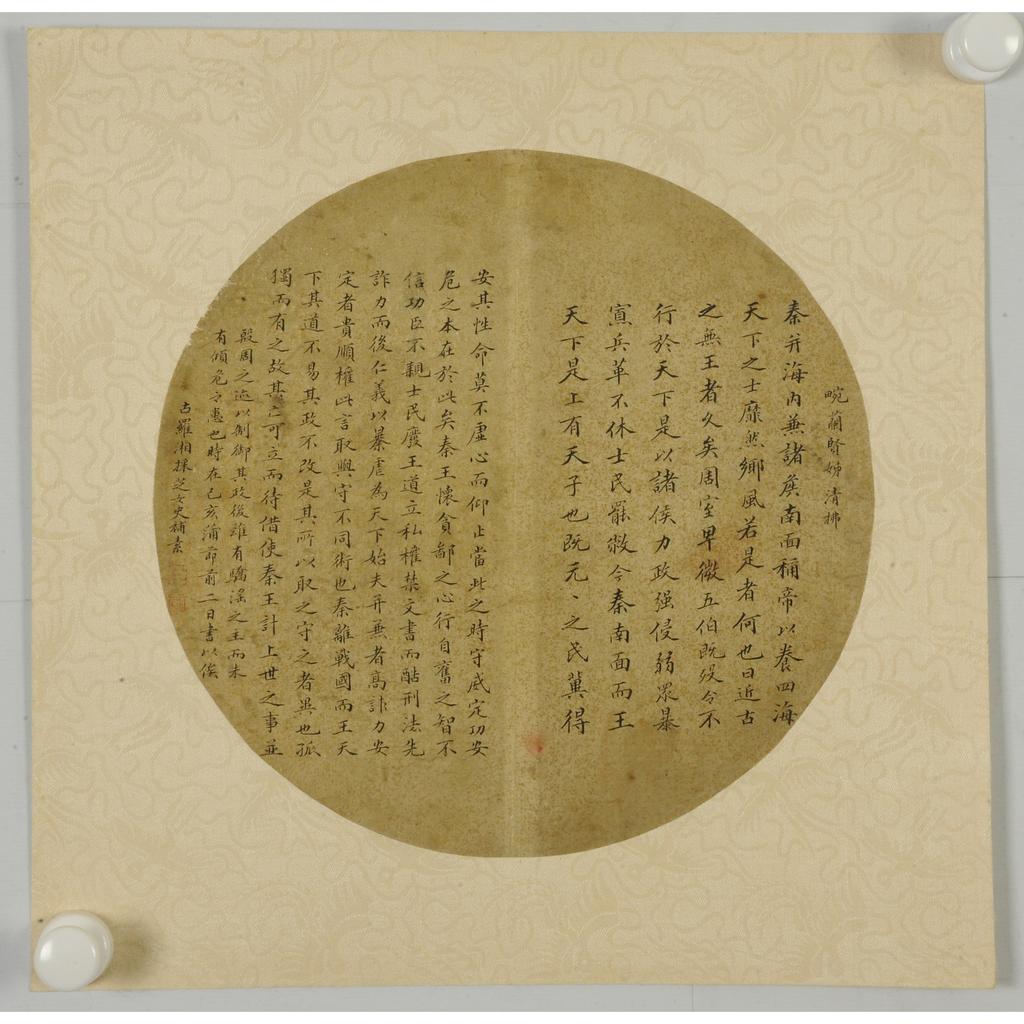 畹蘭賢姊清拂
秦并海內兼諸矦南面稱帝以養四海
天下之士靡然鄉風若是者何也曰近古
之無王者久矣周室卑微五伯既歿令不
行於天下是以諸侯力政强侵弱眾暴
寡兵革不休士民罷敝今秦南面而王
天下是上有天子也既元、之民冀得
安其性命莫不虛心而仰止當此之時守威定功安
危之本在於此矣秦王懷貪鄙之心行自奮之智不
信功臣不親士民廢王道立私權禁文書而酷刑法先
詐力而後仁義以暴虐為天下始夫并兼者高詐力安
定者貴順權此言取與守不同術也秦離戰國而王天
下其道不易其政不改是其所以取之守之者異也孤
獨而有之故其亡可立而待借使秦王計上世之事並
殷周之迹以制御其政後雖有驕淫之主而未
有傾危之患也時在己亥蒲節前二日書以俟
古羅湘採芝女史補素